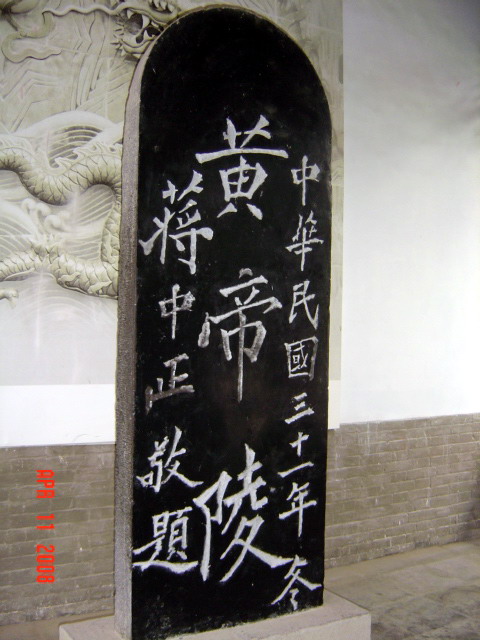 中華民國三十一年冬
黃帝陵
蔣中正敬題
APR 11 2008